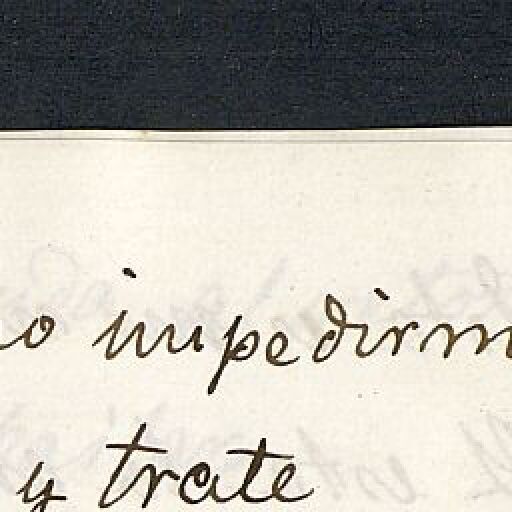 impedirm
y trate